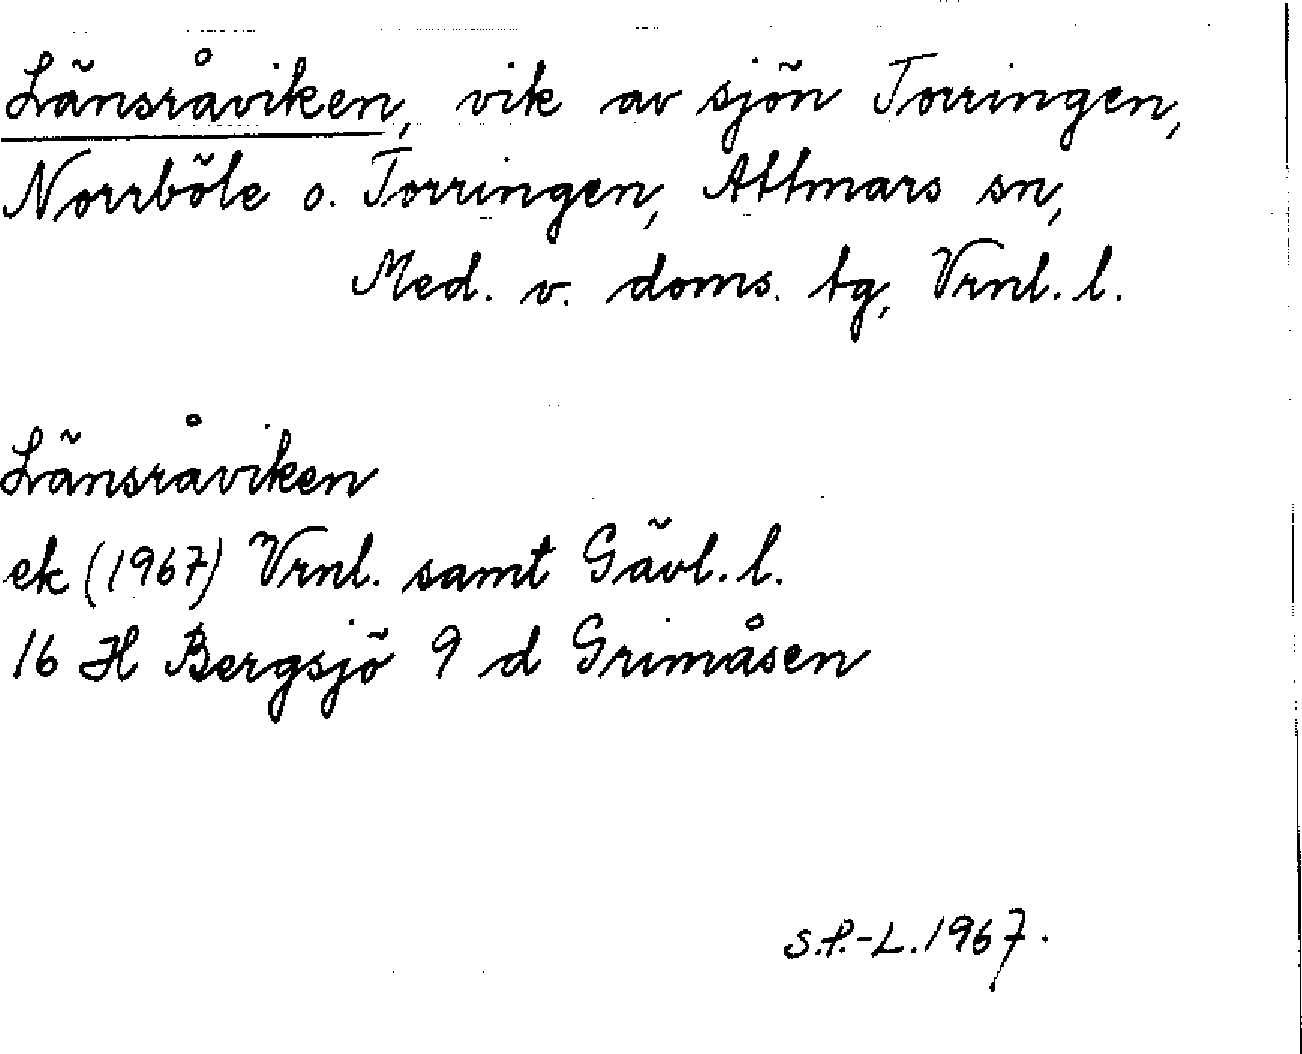 Länsråviken, vik av sjön Torringen,
Norrböle o. Torringen, Attmars sn,
Med. v. doms. tg, Vrnl. l.
Länsråviken
ek (1967) Vrnl. samt Gävl. l.
16 H Bergsjö 9 d Grimåsen
S.P.-L. 1967.